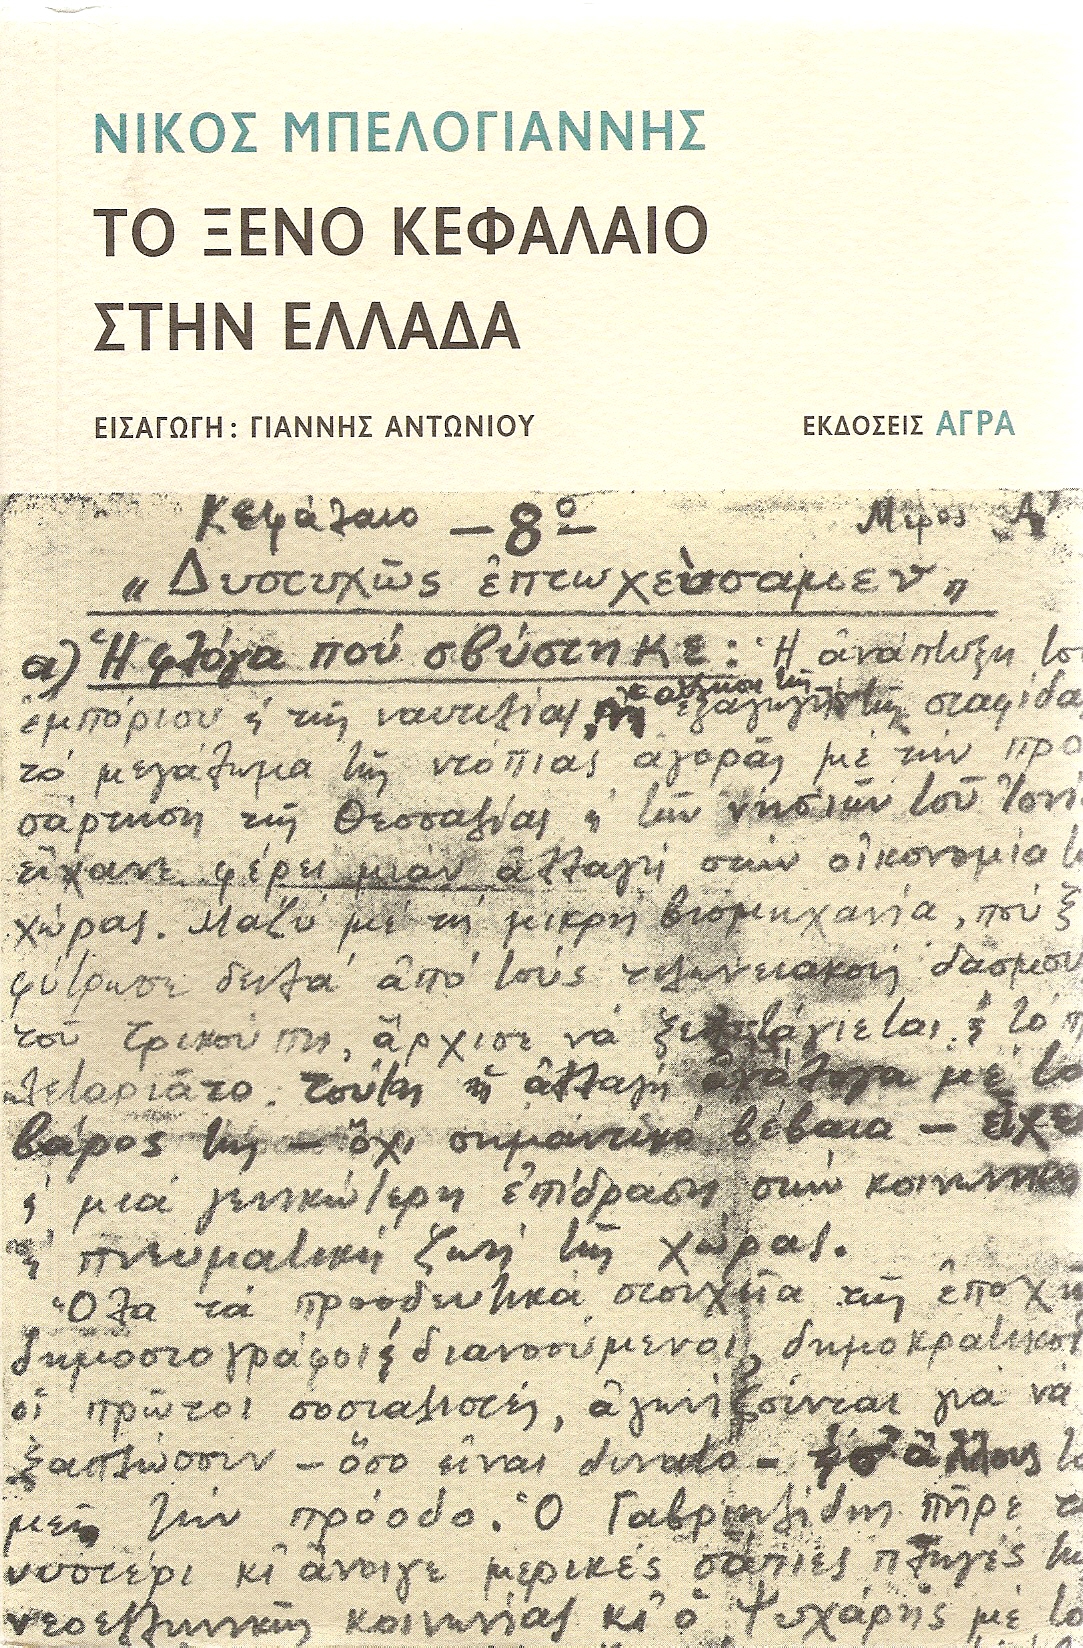 ΝΙΚΟΣ ΜΠΕΛΟΓΙΑΝΝΗΣ
ΤΟ ΞΕΝΟ ΚΕΦΑΛΑΙΟ
ΣΤΗΝ ΕΛΛΑΔΑ
ΕΙΣΑΓΩΓΗ: ΓΙΑΝΝΗΣ ΑΝΤΩΝΙΟΥ ΕΚΔΟΣΕΙΣ ΑΓΡΑ
Κεφάλαιο – 8º – Μέρος Α'
„Δυστυχῶς ἐπτωχεύσαμεν„
α) Ἡ φλόγα πού σβύστηκε: Ἡ ἀνάπτυξη τοῦ
ἐμπόριου ϗ τῆς ναυτιλίας, ἡ αὔξηση τῆς ἐξαγωγῆς τῆς σταφίδας
τό μεγάλωμα τῆς ντόπιας ἀγορᾶς μέ τήν προ
σάρτηση τῆς Θεσσαλίας ϗ τῶν νησιῶν τοῦ Ἰονί
εἴχανε φέρει μιάν ἀλλαγή στήν οἰκονομία
χώρας. Μαζύ μέ τή μικρή βιομηχανία, πού ξ
φύτρωσε δειλά ἀπό τούς τελωνειακούς δασμού
τοῦ Τρικούπη, ἄρχισε νά ξε ϗ τό π
λεταριάτο. Τούτη ἡ ἀλλαγή ἀνάλογα μέ το
βάρος της – ὄχι σημαντικό βέβαια – εἶχε
ϗ μιά γενικώτερη ἐπίδραση στήν κοινωνική
ϗ πνευματική ζωή τῆς χώρας.
Ὅλα τά προοδευτικά στοιχεῖα τῆς ἐποχῆ
δημοσιογράφοι ϗ διανοούμενοι, δημοκρατικοί
οἱ πρῶτοι σοσιαλιστές, ἀγωνίζονται γιά νά
ξαπλώσουν – ὅσο εἶναι δυνατό – σ' ἄλλους
μεῖς τήν πρόοδο. Ὁ Γαβριηλίδης πῆρε τ
νυστέρι κι ἄνοιγε μερικές σάπιες πληγές τη
νεοελληνικῆς κοινωνίας κι ὁ Ψυχάρης μέ το